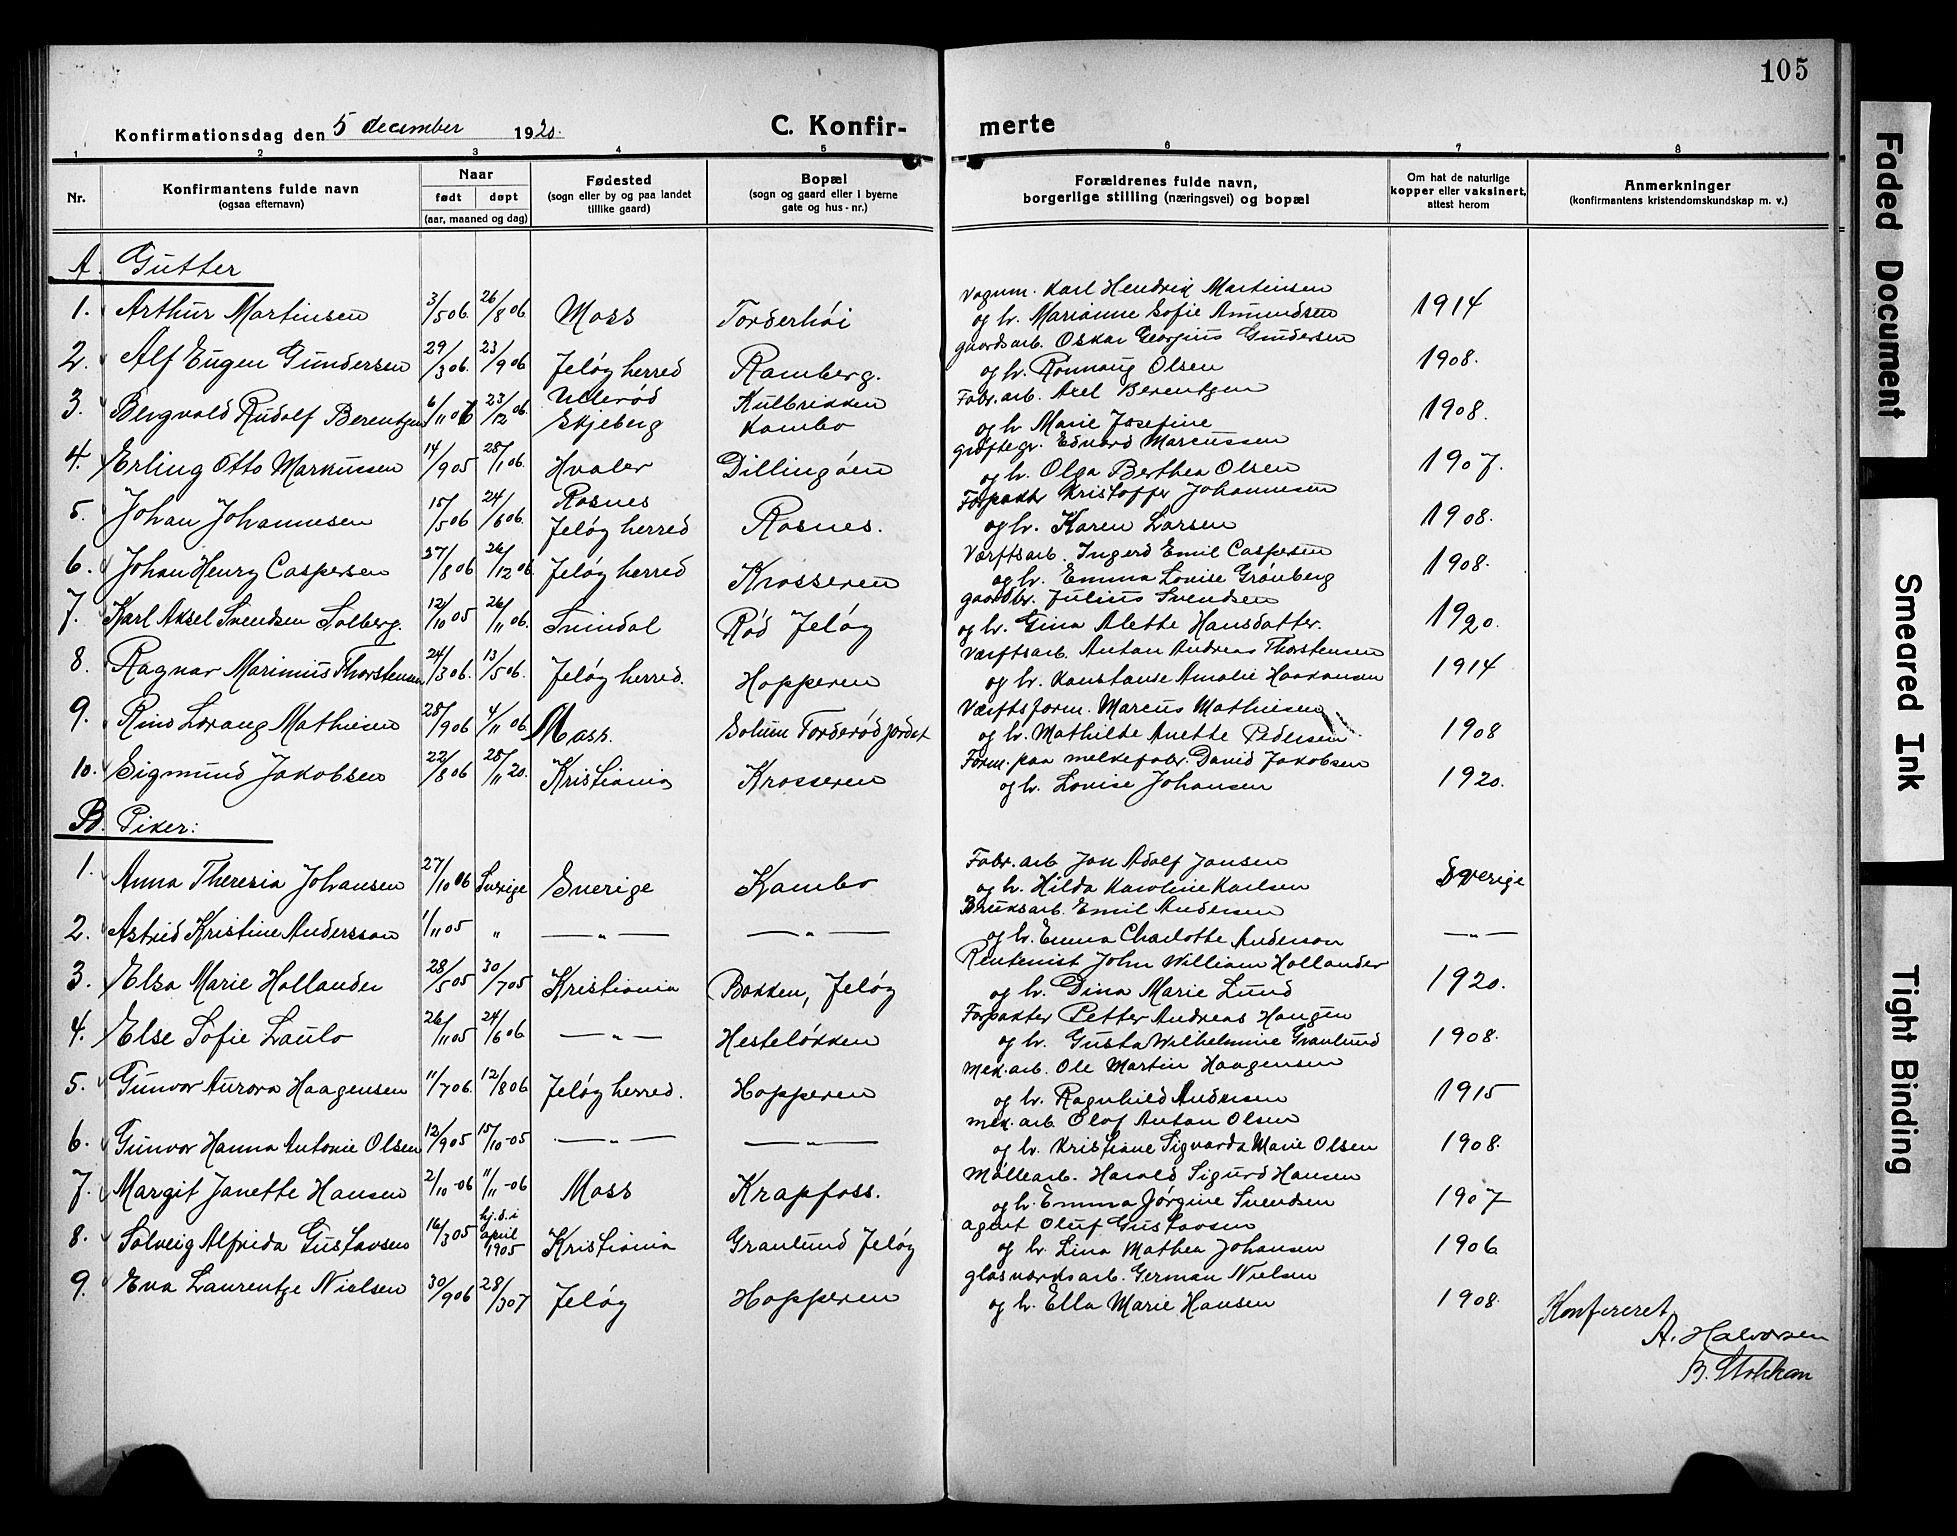 105
Konfirmationsdag den 5 december 1920.
C. Konfirmerte
1 2 3 4 5 6 7 8
Nr.
Konfirmantens fulde navn
(ogsaa efternavn)
Naar
født døpt
(aar, maaned og dag)
Fødested
(sogn eller by og paa landet
tillike gaard)
Bopæl
(sogn og gaard eller i byerne
gate og hus-nr.)
Forældrenes fulde navn,
borgerlige stilling (næringsvei) og bopæl
Om hat de naturlige
kopper eller vaksinert,
attest herom
Anmerkninger
(konfirmantens kristendomskundskap m. v.)
A. Gutter
1. Arthur Martinsen 3/5 06. 26/8 06 Moss Torderhøi Vognm. Karl Hendrik Martinsen og h. Marianne Sofie Amundsen 1914
2. Alf Eugen Gundersen 29/3 06. 23/9 06 Jeløy herred Ramberg. gaardsarb. Oskar Georgius Gundersen og h. Ronnaug Olsen 1908.
3. Bergvald Rudolf Berentzen 6/11 06 23/12 06. Ullerød Skjeberg Kulbrikken Kambo Fabr. arb. Axel Berentzen og h. Marie Josefine 1908.
4. Erling Otto Markussen 14/9 05 28/1 06. Hvaler Dillingøen grøftegr. Edvard Marcussen og h. Olga Berthea Olsen 1907.
5. Johan Johannesen 15/5 06 24/6 06. Rosnes Jeløy herred Rosnes. Forpakter Kristoffer Johannesen og h. Karen Larsen 1908.
6. Johan Henry Caspersen 27/8 06 26/12 06. Jeløy herred Krosseren Værftsarb. Ingerd Emil Caspersen og h. Emma Lovise Grønberg 1908.
7. Karl Aksel Svendsen Solberg. 12/10 05 26/11 06. Svindal Rød Jeløy gaardbr. Julius Svendsen og h. Gina Alette Hansdatter. 1920.
8. Ragnar Marinius Thorstensen 24/3 06. 13/5 06. Jeløy herred. Hopperen Værftsarb. Anton Andreas Thorstensen og h. Konstanse Amalie Haakonsen 1914
9. Rino Lorang Mathiesen 28/9 06 4/11 06. Moss. Solum Torderød jordet Værftsform. Marcus Mathiesen og h. Mathilde Anette Pedersen 1908
10. Sigmund Jakobsen 22/8 06 28/11 20. Kristiania Krosseren Form. paa melkefabr. David Jakobsen og h. Lovise Johansen 1920.
B. Piker:
1. Anna Theresia Johansen 27/10 06 Sverige Sverige Kambo Fabr. arb Jon Adolf Jansen og h. Hilda Karoline Karlsen Sverige
2. Astrid Kristine Andersson 1/11 05 " — " — — " — Bruksarb. Emil Andersen og h. Emma Charlotte Anderson — " —
3. Elsa Marie Hollander 28/5 05 30/7 05 Kristiania Bakken, Jeløy Rentenist John William Hollander og h. Dina Marie Lund 1920.
4. Else Sofie Laulo 26/11 05 24/6 06 — " — Hesteløkken Forpakter Petter Andreas Haugen og h. Gusta Wilhelmine Granlund 1908.
5. Gunvor Aurora Haagensen 11/7 06. 12/8 06 Jeløy herred. Hopperen Mek. arb. Ole Martin Haagensen og h. Ragnhild Andersen 1915
6. Gunvor Hanna Antonie Olsen 12/9 05 15/10-05 — " — — " — mek. arb Olof Anton Olsen og h. Kristiane Sigvarda Marie Olsen 1908.
7. Margit Janette Hansen 2/10-06 11/11-06 Moss Krapfoss. Møllearb. Harald Sigurd Hansen og h. Emma Jørgine Svendsen 1907
8. Solveig Alfrida Gustavsen 16/3 05 hj. d. i april 1905 Kristiania Granlund Jeløy agent Oluf Gustavsen og h. Lina Mathea Johansen 1906
9. Eva Laurentze Nielsen 30/9 06 28/3 07 Jeløy Hopperen glasværksarb. German Nielsen og h. Ella Marie Hansen 1908.
Konfereret
A. Halvorsen
B. Stokkan
Faded Document
Smeared Ink
Tight Binding